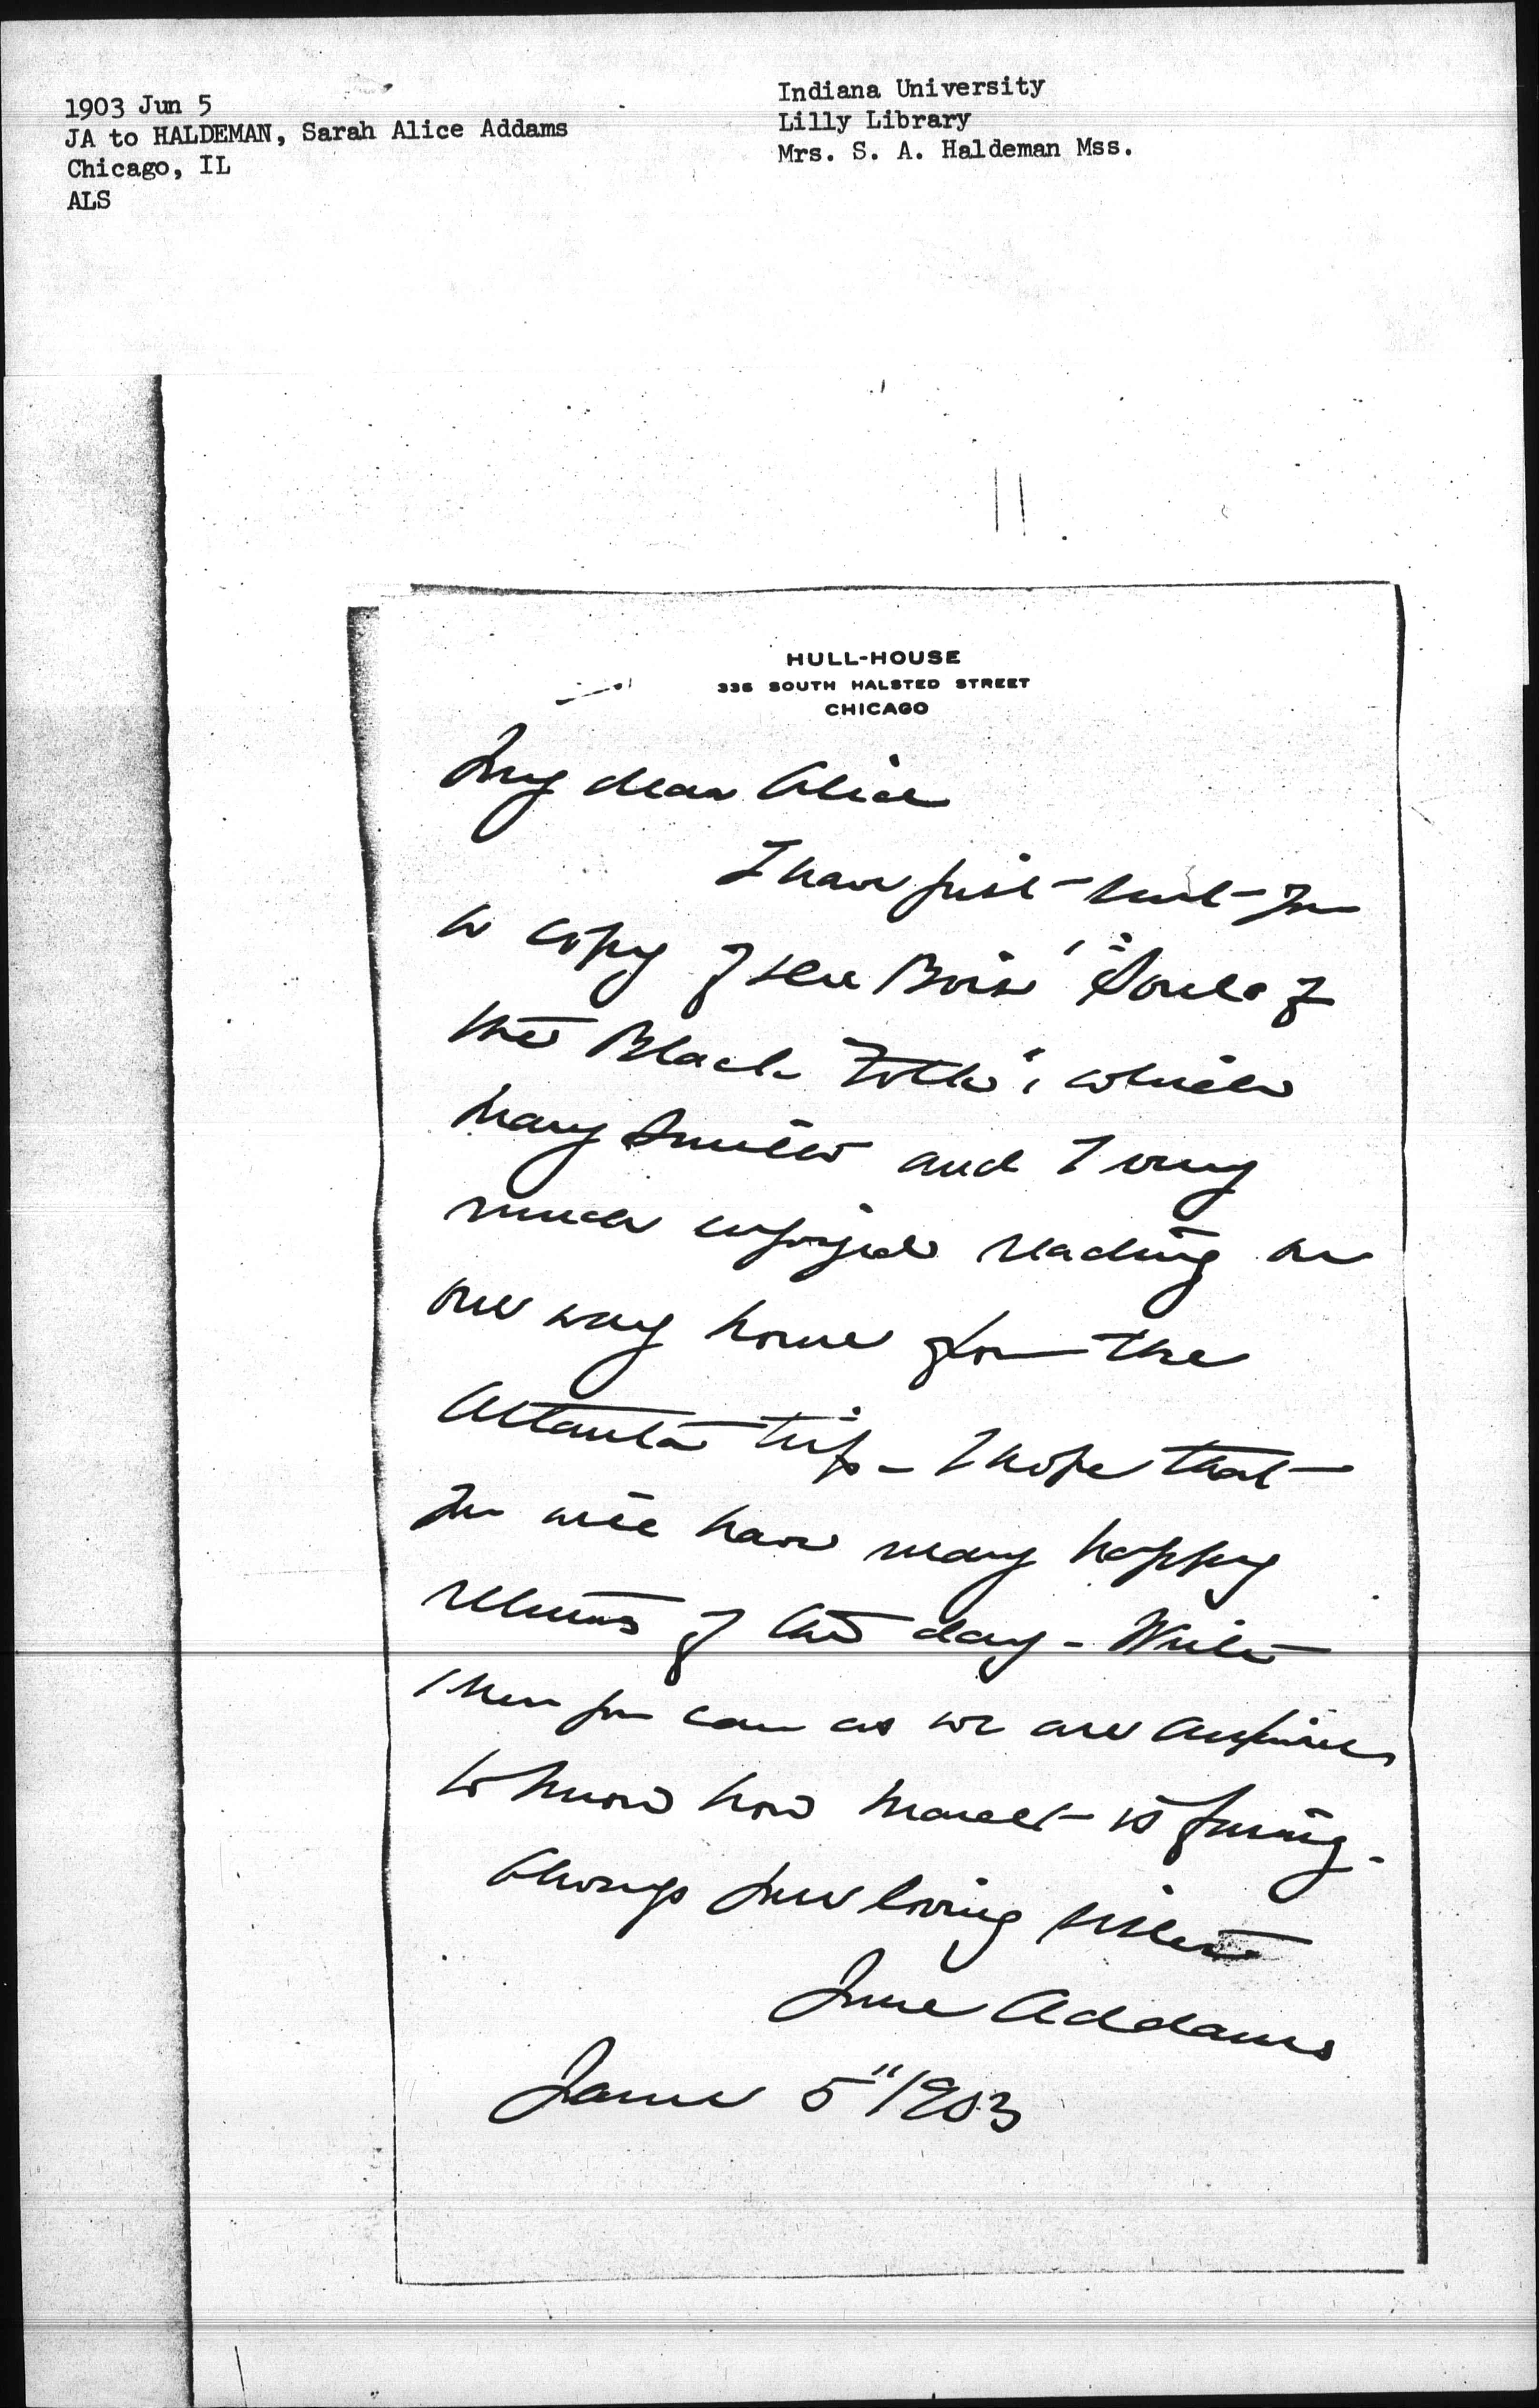 1903 Jun 5
JA to HALDEMAN, Sarah Alice Addams
Chicago, IL
ALS
Indiana University
Lilly Library
Mrs. S. A. Haldeman Mss.
HULL-HOUSE
335 SOUTH HALSTED STREET
CHICAGO
My dear Alice
I have just sent you
a copy of Du Bois' "Souls of
the Black Folk", which
Mary Smith and I very
much enjoyed reading on
our way home from the
Atlanta trip - I hope that
you will have many happy
returns of the day - Write
when you can as we are anxious
to know how Marcet is faring -
Always your loving sister
Jane Addams
June 5" 1903